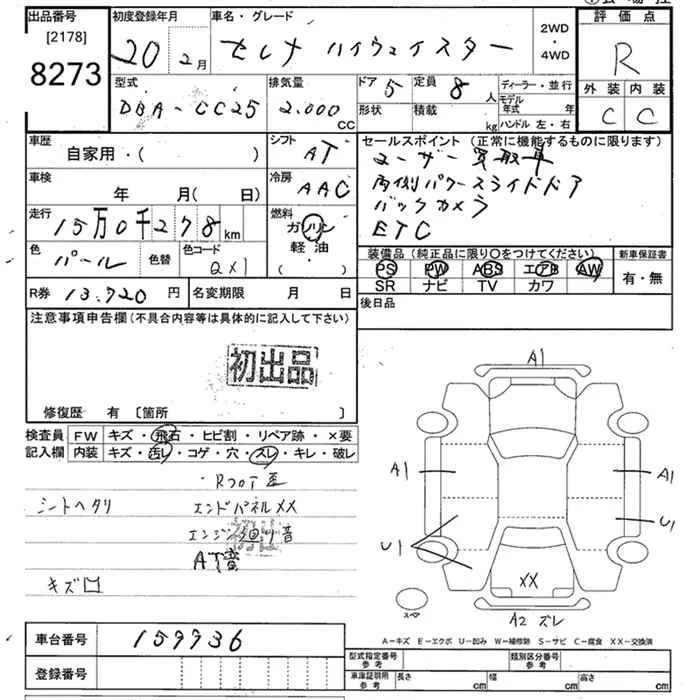 出品番号 初度登録年月 車名・グレード 評価点
[2178]
8273
20年 2月 セレナ ハイウェイスター 2WD・4WD R
型式 排気量 ドア 5 定員 8人 ディーラー・並行 外装 内装
DBA-CC25 2.000CC 形状 積載 kg モデル年式 年 ハンドル 左・右 C C
車歴 シフト セールスポイント (正常に機能するものに限ります)
自家用・( ) AT ユーザー買取車
車検 冷房 両側パワースライドドア
年 月(日) AAC バックカメラ
走行 燃料 ETC
15万0千278km ガソリン 軽油 ( )
色 パール 色替 色コード QX1
装備品 (純正品に限り〇をつけてください) 新車保証書
PS PW ABS エアB AW 有・無
SR ナビ TV カワ
R券 13.720円 名変期限 月 日 後日品
注意事項申告欄 (不具合内容等は具体的に記入して下さい)
初出品
修復歴 有 〔箇所 〕
検査員記入欄 FW キズ・飛石・ヒビ割・リペア跡・×要
内装 キズ・汚レ・コゲ・穴・スレ・キレ・破レ
・RフロT歪
シートヘタリ エンドパネルXX
エンジン回り音
AT音
キズ口
A1
A1 A1
U1 U1
XX
スペア A2 ズレ
A-キズ E-エクボ U-凹み W-補修跡 S-サビ C-腐食 XX-交換済
車台番号 159936
登録番号
型式指定番号 参考 類別区分番号 参考
車庫証明用 参考 長さ cm 幅 cm 高さ cm